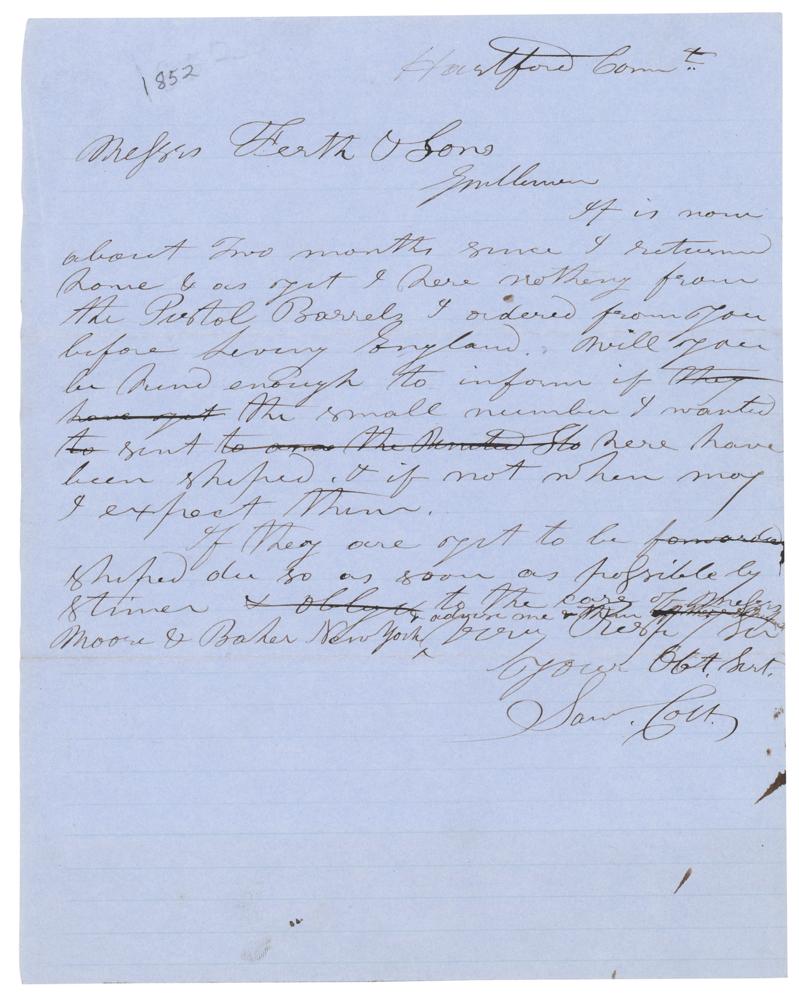 1852
Hartford Connt.
Messrs Ferth & Sons
Gentlemen
It is now
about Two months since I returned
home & as yet I here nothing from
the Pistol Barrels I ordered from you
before leving England. Will you
be kind enough to inform if they
have yet the small number I wanted
to sent to the United Sts here have
been shiped, & if not when may
I expect them.
If they are yet to be forwarded
shiped du so as soon as possible by
stimer & oblige to the care of Messrs
& advise me
Moore & Baker New York, very Resp
Your Obt. Sert.
Sam. Colt